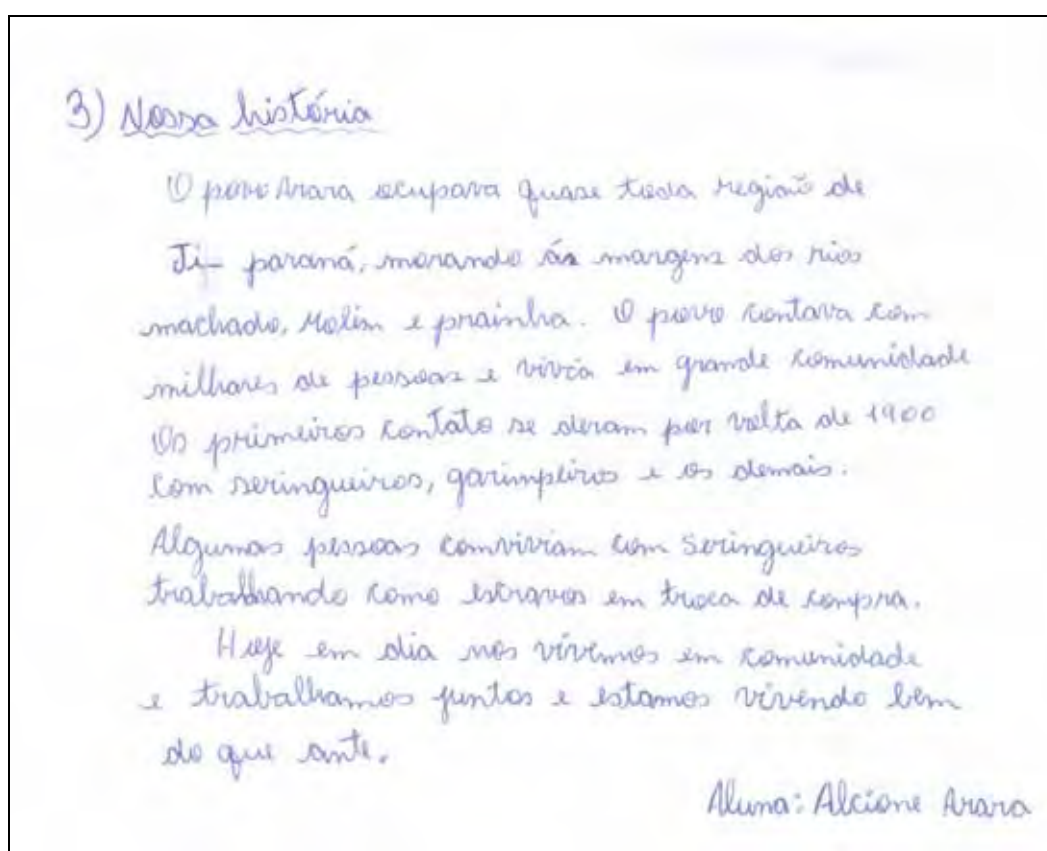 3) Nossa história
O povo Arara ocupava quase toda região de
Ji- paraná, morando ás margens dos rios
machado, Molim e prainha. O povo contava com
milhares de pessoas e vivia em grande comunidade
Os primeiros contato se deram por volta de 1900
com seringueiros, garimpeiros e os demais.
Algumas pessoas conviviam com seringueiros
trabalhando como escravos em troca de compra.
Hoje em dia nós vivemos em comunidade
e trabalhamos juntos e estamos vivendo bem
do que ante.
Aluna: Alcione Arara